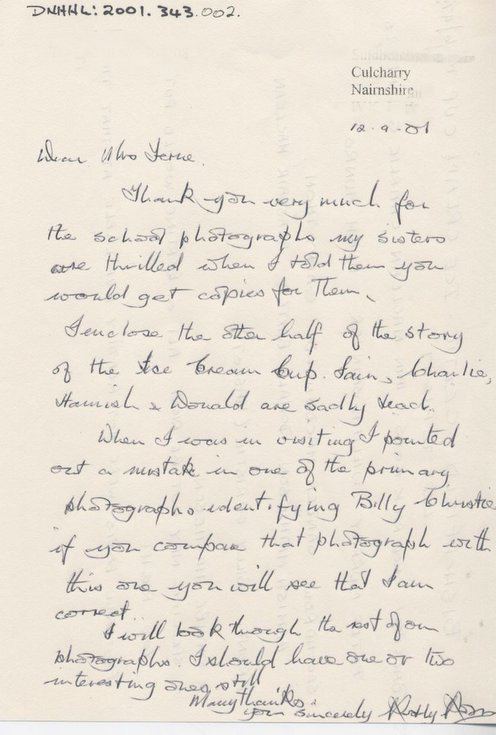 DNHHL: 2001.343.002.
Culcharry
Nairnshire
12.9.01
Dear Mrs
Thank you very much for
the school photographs my sisters
are thrilled when I told them you
would get copies for them.
I enclose the other half of the story
of the Ice Cream Cup. Iain, Charlie,
Hamish & Donald are sadly dead.
When I was in visiting I pointed
out a mistake in one of the primary
photographs identifying Billy Christie
if you compare that photograph with
this one you will see that I am
correct.
I will look through the rest of our
photographs. I should have one or two
interesting ones still
Many Thanks
your sincerely